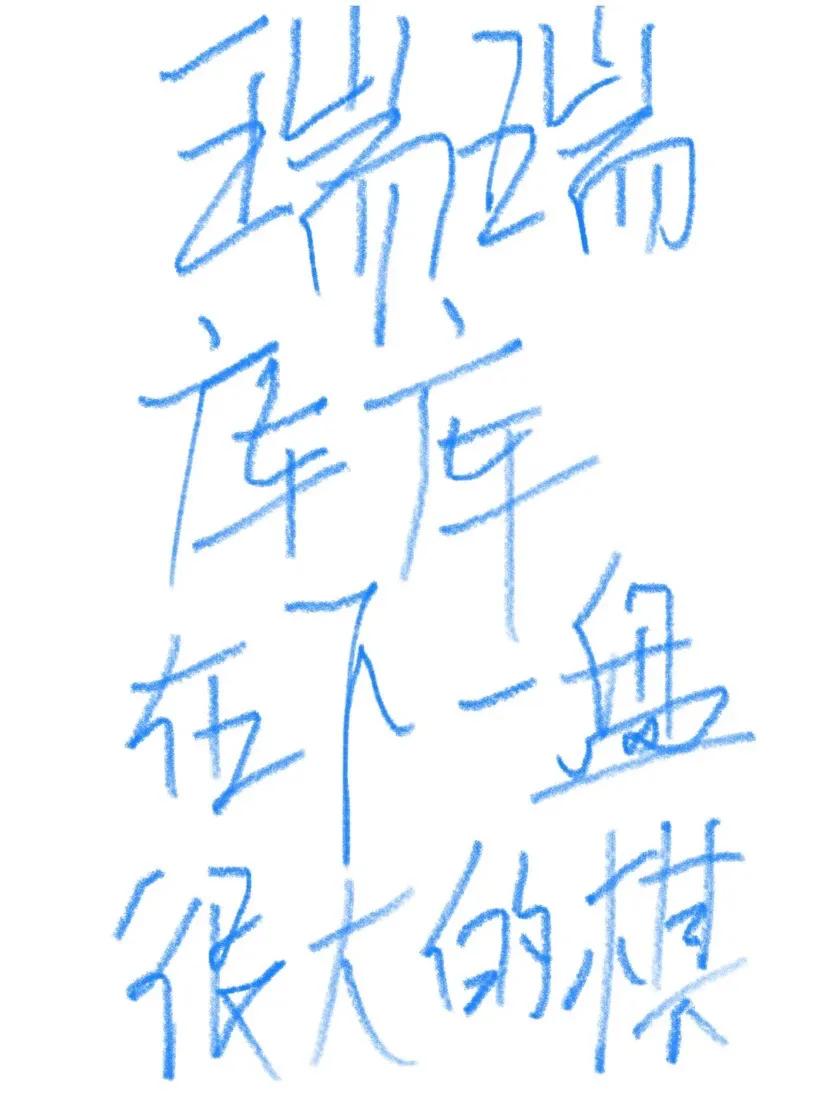 瑞瑞
库库
在下一盘
很大的棋